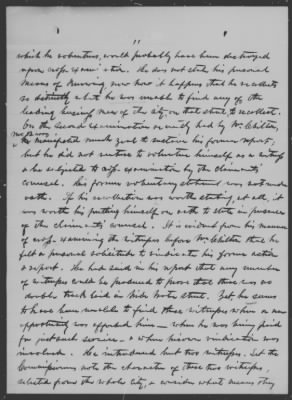 11
which he volunteers, would probably have been destroyed
upon cross examination. He does not state his personal
means of knowing, nor how it happens that he recollects
so distinctly what he was unable to find any of the
leading business men of the city on that street to recollect.
On the second examination recently had by Mr. Chilton,
he manifested much zeal to sustain his former report,
but he did not venture to volunteer himself as a witness
& be subjected to cross examination by the claimants'
counsel. His former voluntary statement was not under
oath. If his recollection was worth stating, at all, it
was worth his putting himself on oath to state in presence
of the claimants' counsel. It is evident from his manner
of cross examining the witnesses before Mr. Chilton that he
felt a personal solicitude to vindicate his former action
& report. He had said in his report that any number
of witnesses could be produced to prove that there was no
double track laid on that street. Yet he seems
to have been unable to find these witnesses when a new
opportunity was afforded him — when he was being paid
for just such service — & when his own vindication was
involved. He introduced but two witnesses. Let the
Commissioners note the character of these two witnesses,
selected from the whole city, & consider what means they